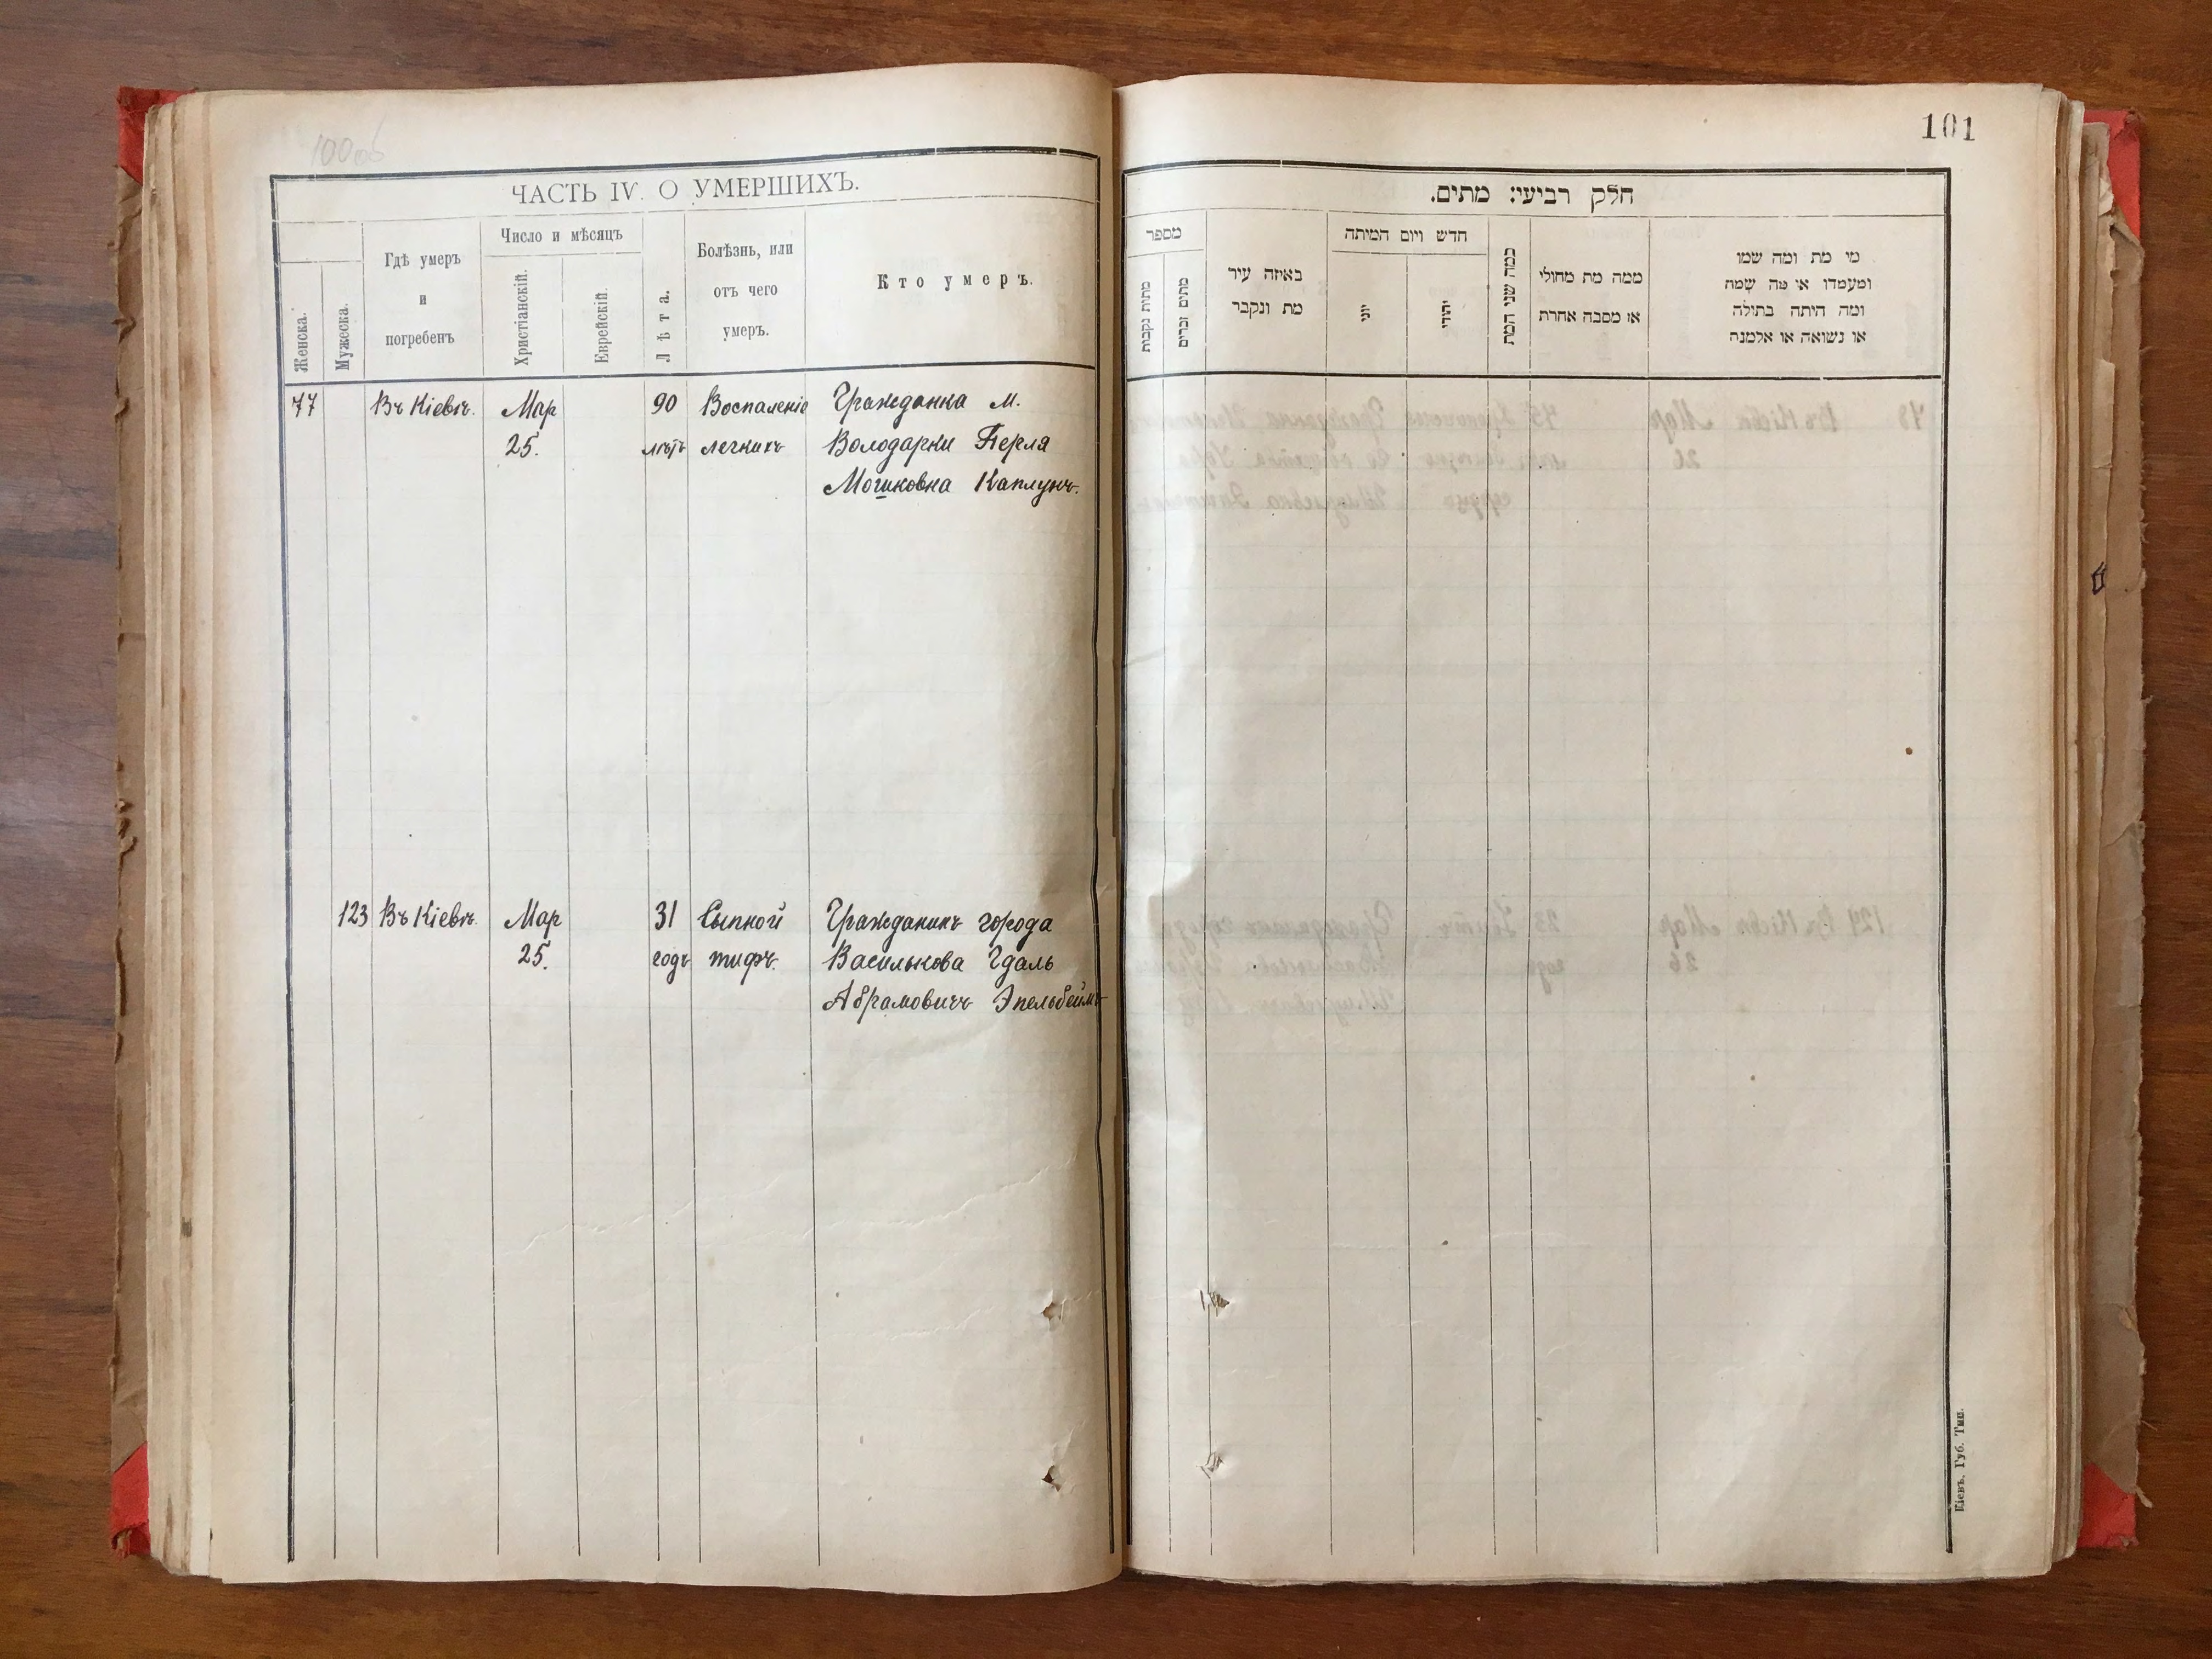 100об
ЧАСТЬ IV. О УМЕРШИХЪ.
Женска.
Мужеска.
Гдѣ умеръ
и
погребенъ
Число и мѣсяцъ
Христіанскій.
Еврейскій.
Лѣта.
Болѣзнь, или
отъ чего
умеръ.
Кто умеръ.
77 Въ Кіевѣ. Мар 90 Воспаленіе Гражданка м.
25. лѣтъ легкихъ Володарки Перля
Мошковна Каплунъ.
123 Въ Кіевѣ. Мар 31 Сыпной Гражданинъ города
25. годъ тифъ. Василькова Гдаль
Абрамовичъ Эпельбеймъ
101
חלק רביעי: מתים.
מספר
מתות נקבות
מתים זכרים
באיזה עיר
מת ונקבר
חדש ויום המיתה
יוני
יהודי
כמה שני המת
ממה מת מחולי
או מסבה אחרת
מי מת ומה שמו
ומעמדו או מה שמה
ומה היתה בתולה
או נשואה או אלמנה
Кіевъ. Губ. Тип.